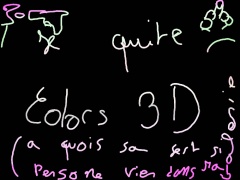 quite
Colors 3D
(a quois sa sert si
persone vien dans ma)